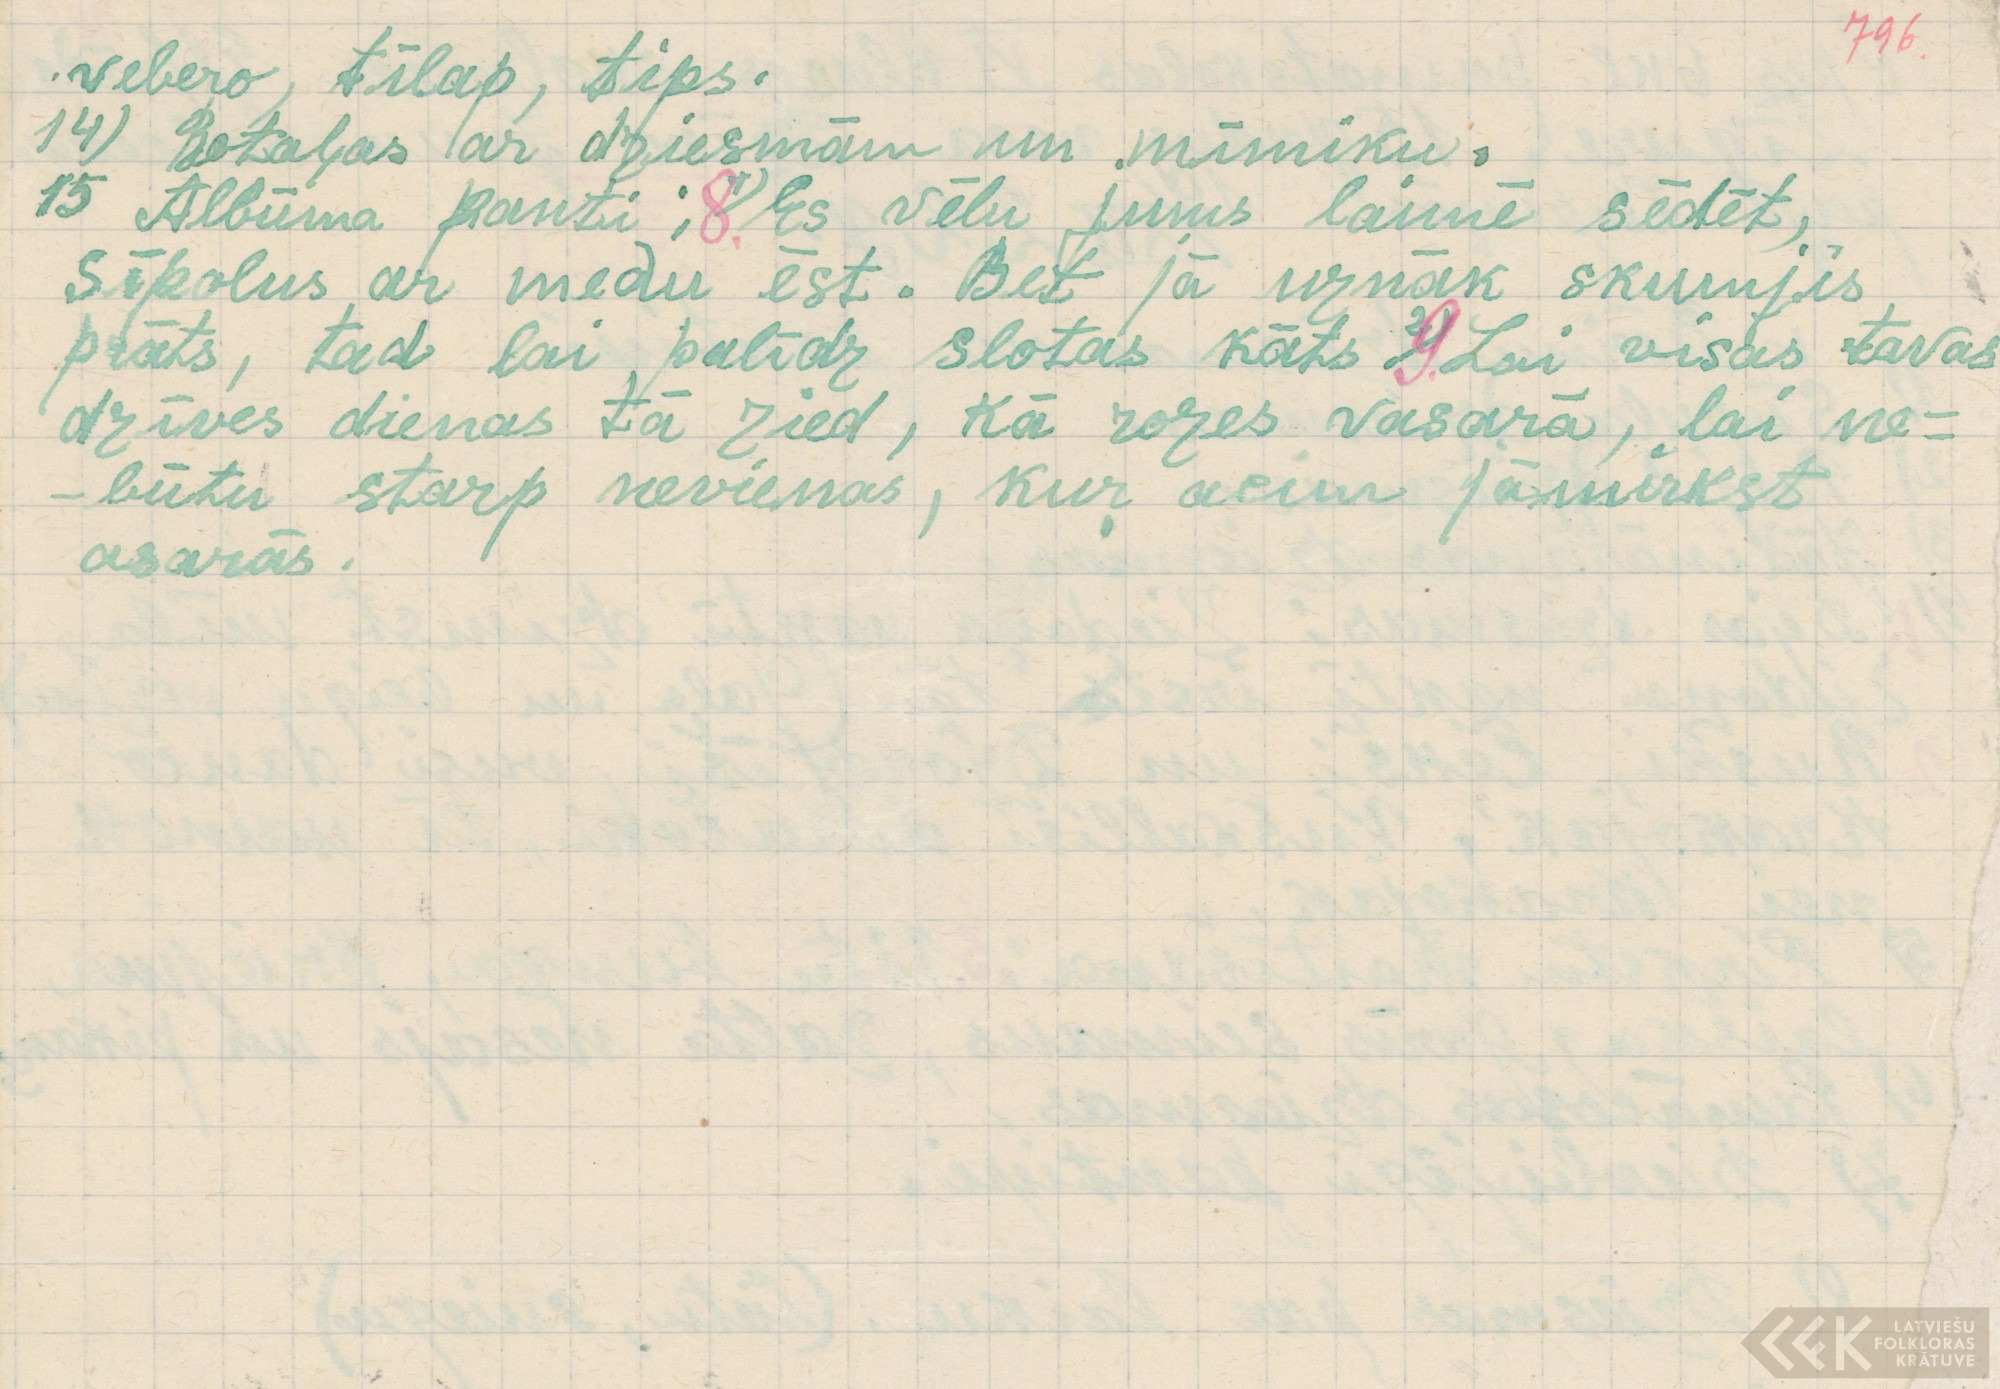 796.
vebero, tīlap, tips.
14) Rotaļas ar dziesmām un mīmiku.
15 Albūma panti: 8. 1) Es vēlu jums laimē sēdēt,
Sīpolus ar medu ēst. Bet jā uznāk skumjis
prāts, tad lai palīdz slotas kāts 2) 9. Lai visas tavas
dzīves dienas tā zied, kā rozes vasarā, lai ne-
-būtu starp nevienas, kur acīm jāmirkst
asarās.
LATVIEŠU
FOLKLORAS
KRĀTUVE